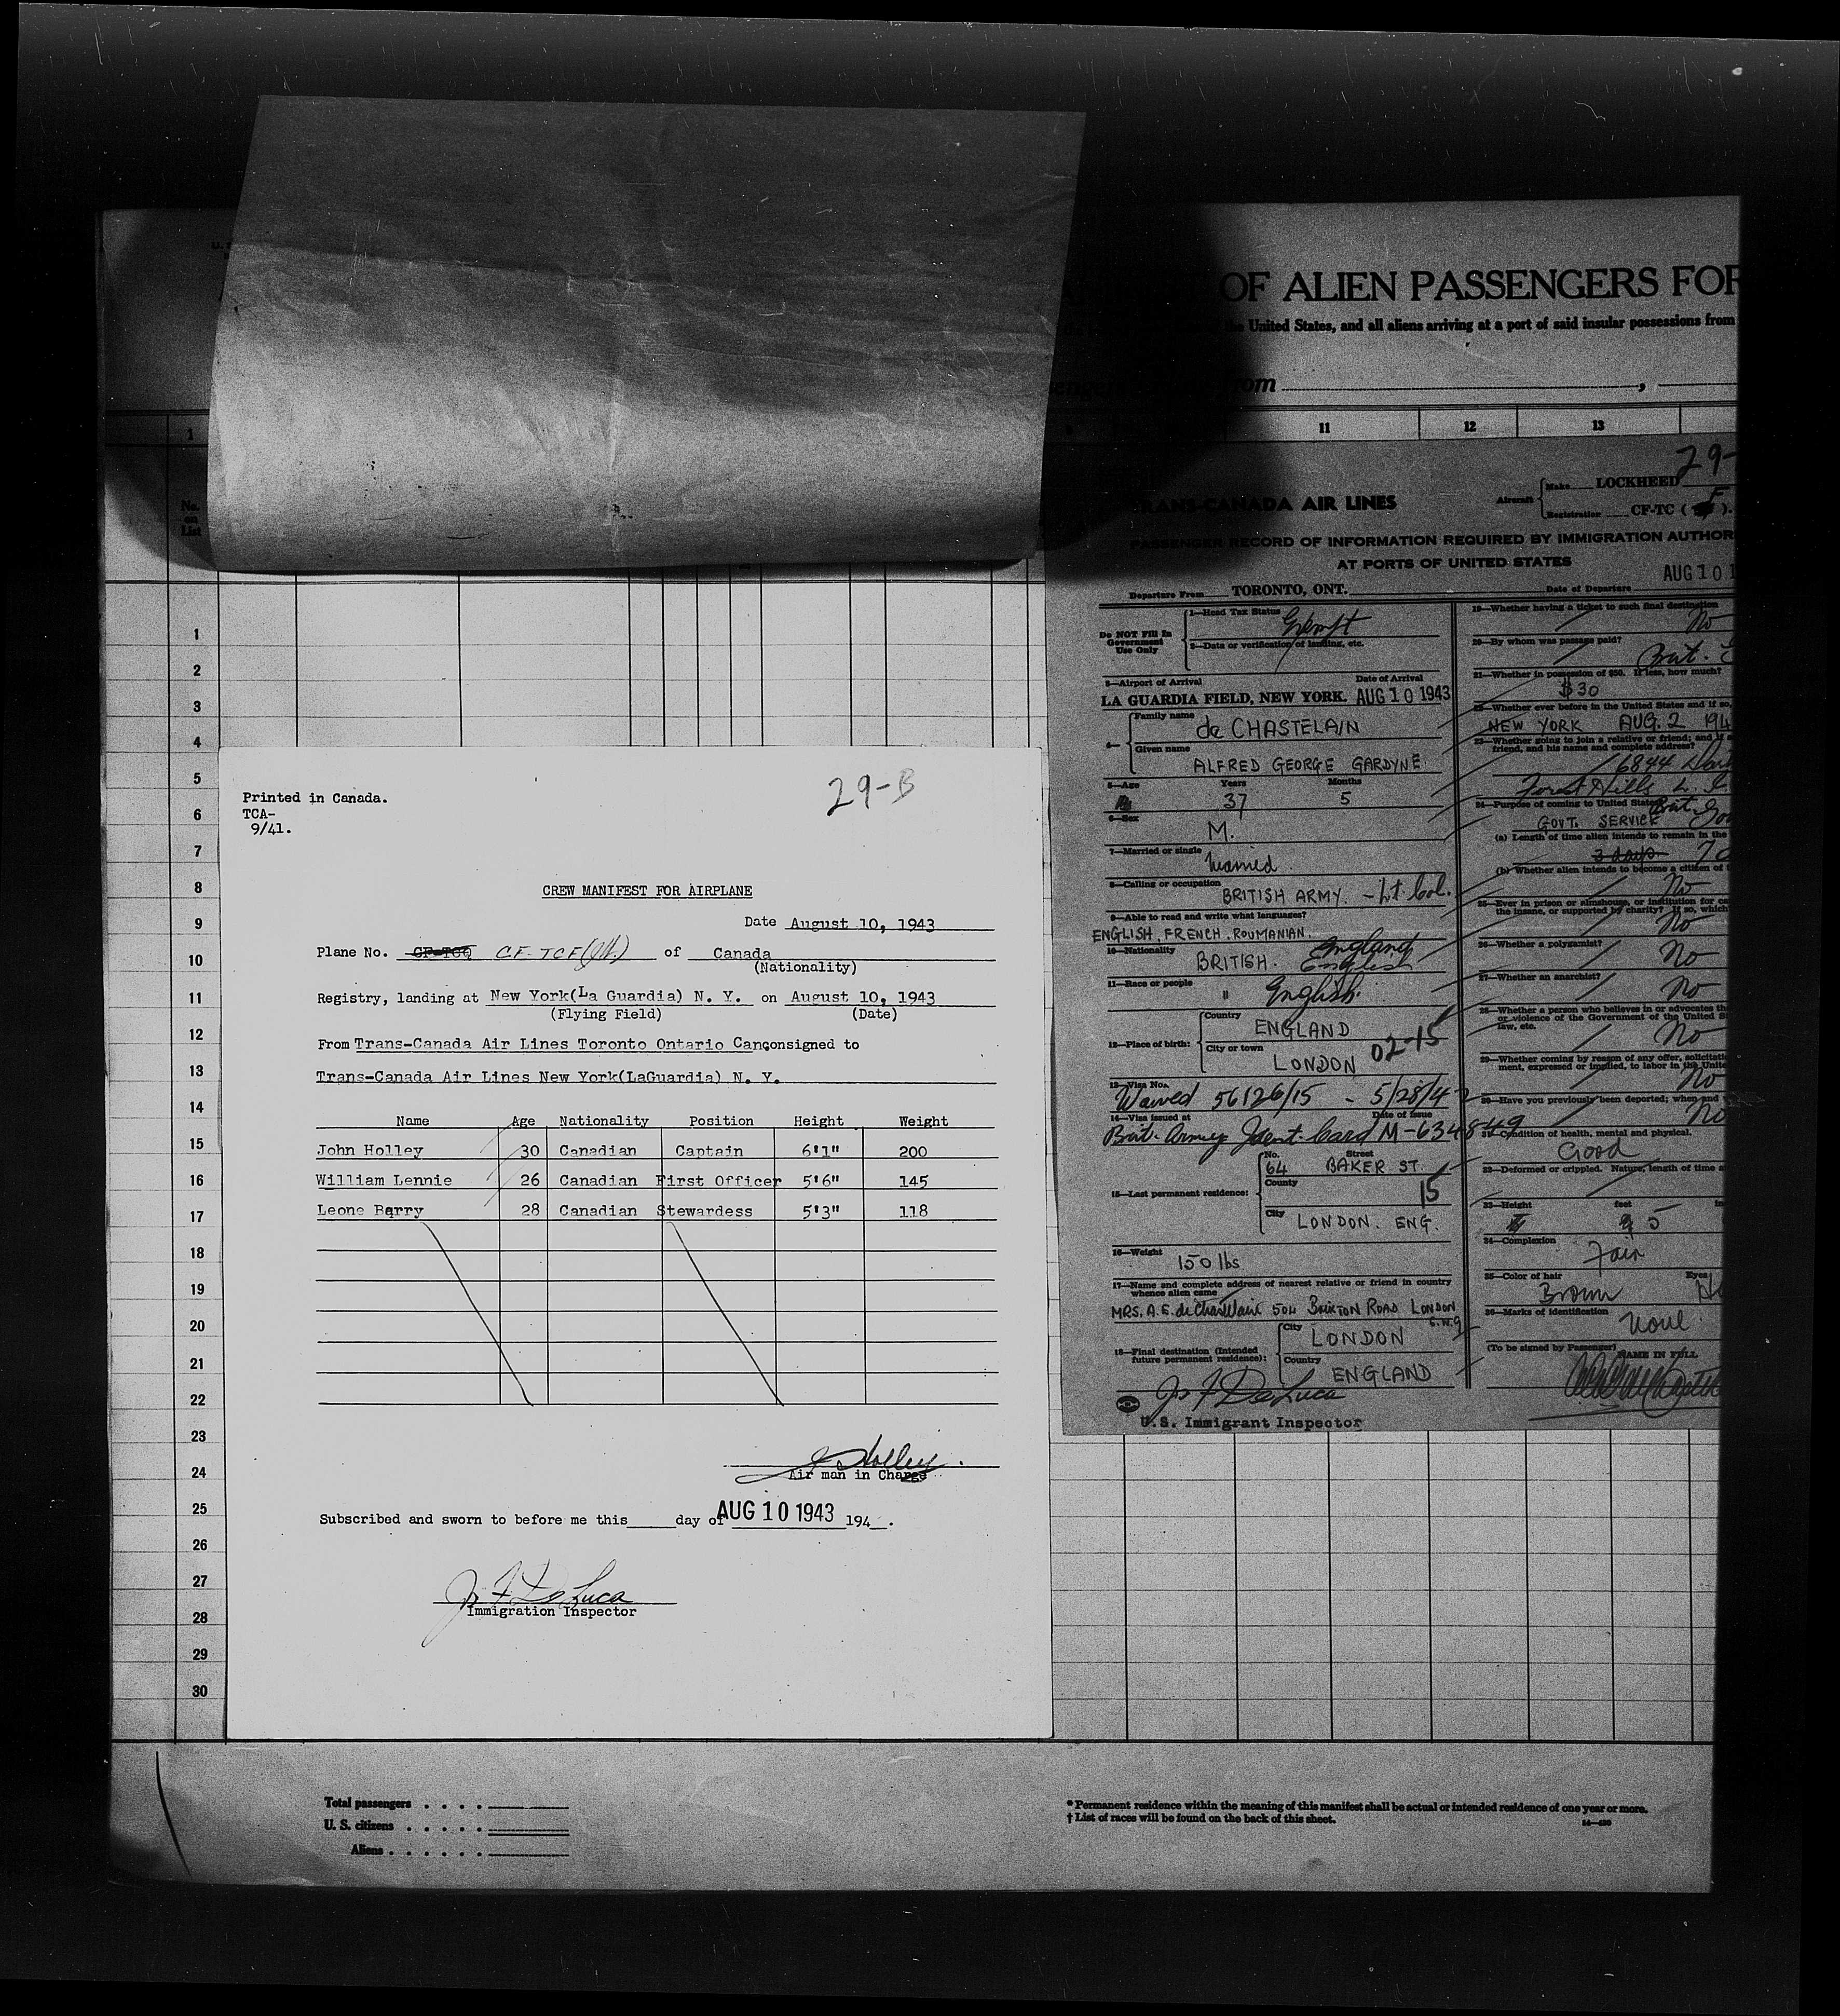 OF ALIEN PASSENGERS FOR
the United States, and all aliens arriving at a port of said insular possessions from
from
1
11
12
13
No.
on
List
1
2
3
4
5
6
7
8
9
10
11
12
13
14
15
16
17
18
19
20
21
22
23
24
25
26
27
28
29
30
Printed in Canada.
TCA-
9/41.
29-B
CREW MANIFEST FOR AIRPLANE
Date August 10, 1943
Plane No. CF-TCQ CF-TCF of Canada
(Nationality)
Registry, landing at New York(La Guardia) N. Y. on August 10, 1943
(Flying Field) (Date)
From Trans-Canada Air Lines Toronto Ontario Can consigned to
Trans-Canada Air Lines New York(LaGuardia) N. Y.
Name Age Nationality Position Height Weight
John Holley 30 Canadian Captain 6'1" 200
William Lennie 26 Canadian First Officer 5'6" 145
Leone Barry 28 Canadian Stewardess 5'3" 118
J Holley
Air man in Charge
Subscribed and sworn to before me this day of AUG 10 1943 194 .
Jr F De Luca
Immigration Inspector
29-
TRANS-CANADA AIR LINES
Aircraft Make LOCKHEED
Registration CF-TC ( F ).
PASSENGER RECORD OF INFORMATION REQUIRED BY IMMIGRATION AUTHOR
AT PORTS OF UNITED STATES
AUG 10 1
Departure From TORONTO, ONT. Date of Departure
Do NOT Fill In
Government
Use Only
1—Head Tax Status Exempt
2—Data or verification of landing, etc.
3—Airport of Arrival Date of Arrival
LA GUARDIA FIELD, NEW YORK. AUG 10 1943
4— Family name de CHASTELAIN
Given name ALFRED GEORGE GARDYNE
5—Age Years 37 Months 5
6—Sex M.
7—Married or single Married
8—Calling or occupation BRITISH ARMY. - Lt Col.
9—Able to read and write what languages?
ENGLISH. FRENCH. ROUMANIAN.
10—Nationality BRITISH. England
English
11—Race or people " English
12—Place of birth: Country ENGLAND
City or town LONDON 02-15
13—Visa No. Waived 56126/15 - 5/28/42
14—Visa issued at Date of Issue
Brit. Army Ident. Card M-634849
15—Last permanent residence: No. 64 Street BAKER ST.
County 15
City LONDON. ENG.
16—Weight 150 lbs
17—Name and complete address of nearest relative or friend in country
whence alien came
MRS. A.E. de Chastelain 504 BRIXTON ROAD LONDON
S.W.9
18—Final destination (Intended
future permanent residence):
City LONDON
Country ENGLAND
Jr F De Luca
U.S. Immigrant Inspector
19—Whether having a ticket to such final destination
No
20—By whom was passage paid?
Brit.
21—Whether in possession of $50. If less, how much?
$30
22—Whether ever before in the United States and if so,
NEW YORK AUG. 2 194
23—Whether going to join a relative or friend; and if a
friend, and his name and complete address?
6844
Forest Hills L. I.
24—Purpose of coming to United States Brit. Gov
GOVT. SERVICE
(a) Length of time alien intends to remain in the
3 days 7
(b) Whether alien intends to become a citizen of
No
25—Ever in prison or almshouse, or institution for ca
the insane, or supported by charity? If so, which
No
26—Whether a polygamist?
No
27—Whether an anarchist?
No
28—Whether a person who believes in or advocates th
or violence of the Government of the United S
law, etc.
No
29—Whether coming by reason of any offer, solicitati
ment, expressed or implied, to labor in the Unite
No
30—Have you previously been deported; when and
No
31—Condition of health, mental and physical.
Good
32—Deformed or crippled. Nature, length of time a
33—Height feet in
5
34—Complexion
Fair
35—Color of hair Eyes
Brown
36—Marks of identification
None
(To be signed by Passenger) NAME IN FULL
Total passengers
U. S. citizens
Aliens
* Permanent residence within the meaning of this manifest shall be actual or intended residence of one year or more.
† List of races will be found on the back of this sheet.